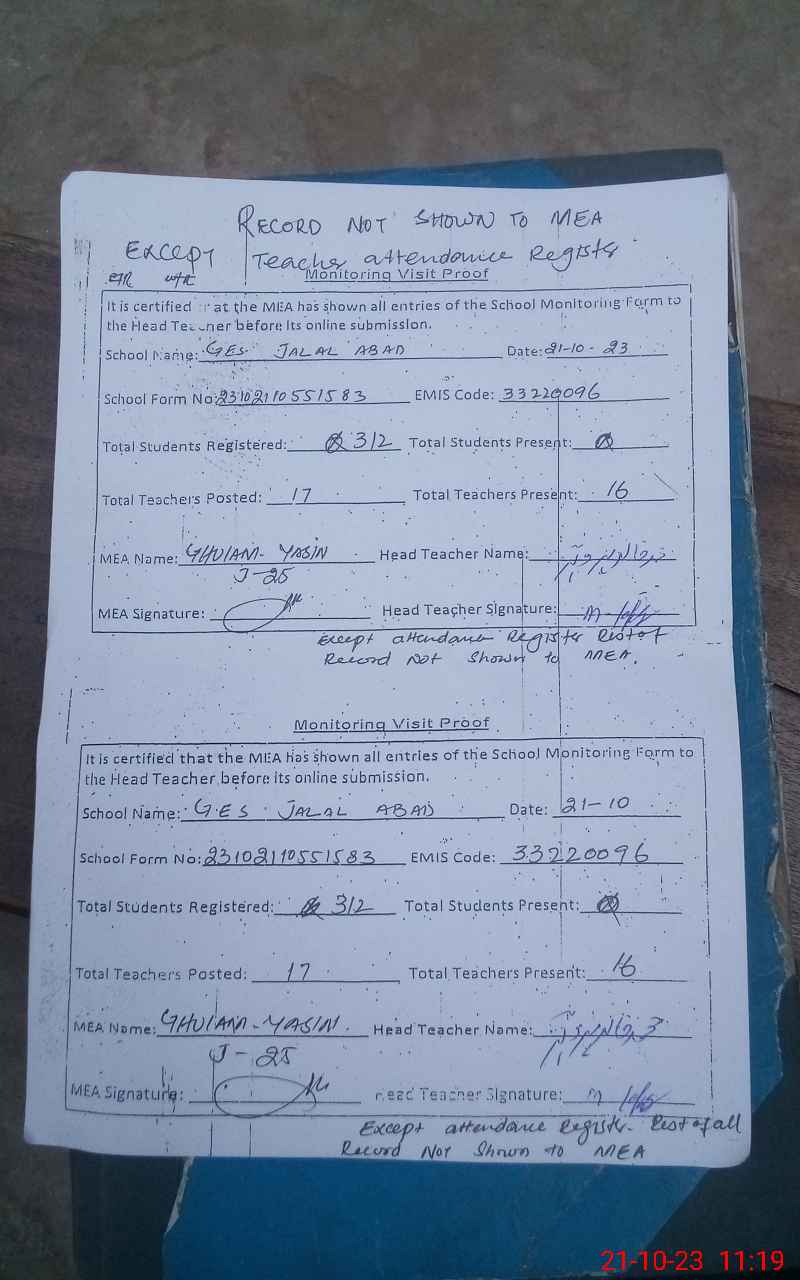 RECORD NOT SHOWN TO MEA
EXCEPT Teacher attendance Register
Monitoring Visit Proof
It is certified at the MEA has shown all entries of the School Monitoring Form to
the Head Teacher before its online submission.
School Name: GES JALAL ABAD Date: 21-10-23
School Form No: 23102110551583 EMIS Code: 33220096
Total Students Registered: 312 Total Students Present:
Total Teachers Posted: 17 Total Teachers Present: 16
MEA Name: GHULAM-YASIN Head Teacher Name:
J-25
MEA Signature: Head Teacher Signature:
Except attendance Register Rest of
Record Not Shown to MEA.
Monitoring Visit Proof
It is certified that the MEA has shown all entries of the School Monitoring Form to
the Head Teacher before its online submission.
School Name: G.E.S JALAL ABAD Date: 21-10
School Form No: 23102110551583 EMIS Code: 33220096
Total Students Registered: 312 Total Students Present:
Total Teachers Posted: 17 Total Teachers Present: 16
MEA Name: GHULAM-YASIN. Head Teacher Name:
J-25
MEA Signature: Head Teacher Signature:
Except attendance Register. Rest of all
Record Not Shown to MEA
21-10-23 11:19